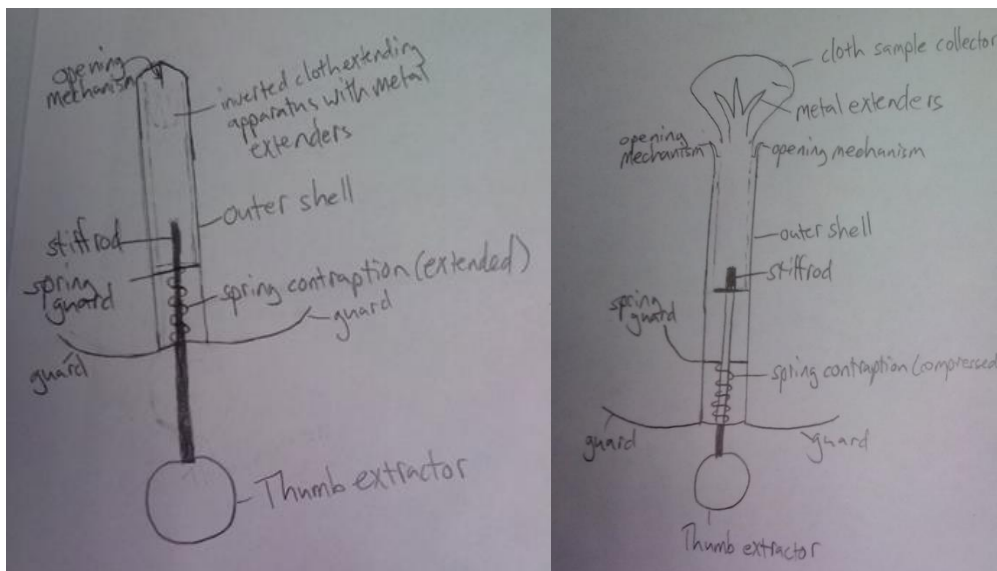 opening
mechanism
inverted cloth extending
apparatus with metal
extenders
outer shell
stiff rod
spring
guard
spring contraption (extended)
guard
guard
Thumb extractor
cloth sample collector
metal extenders
opening
mechanism
opening mechanism
outer shell
stiff rod
spring
guard
spring contraption (compressed
guard
guard
Thumb extractor